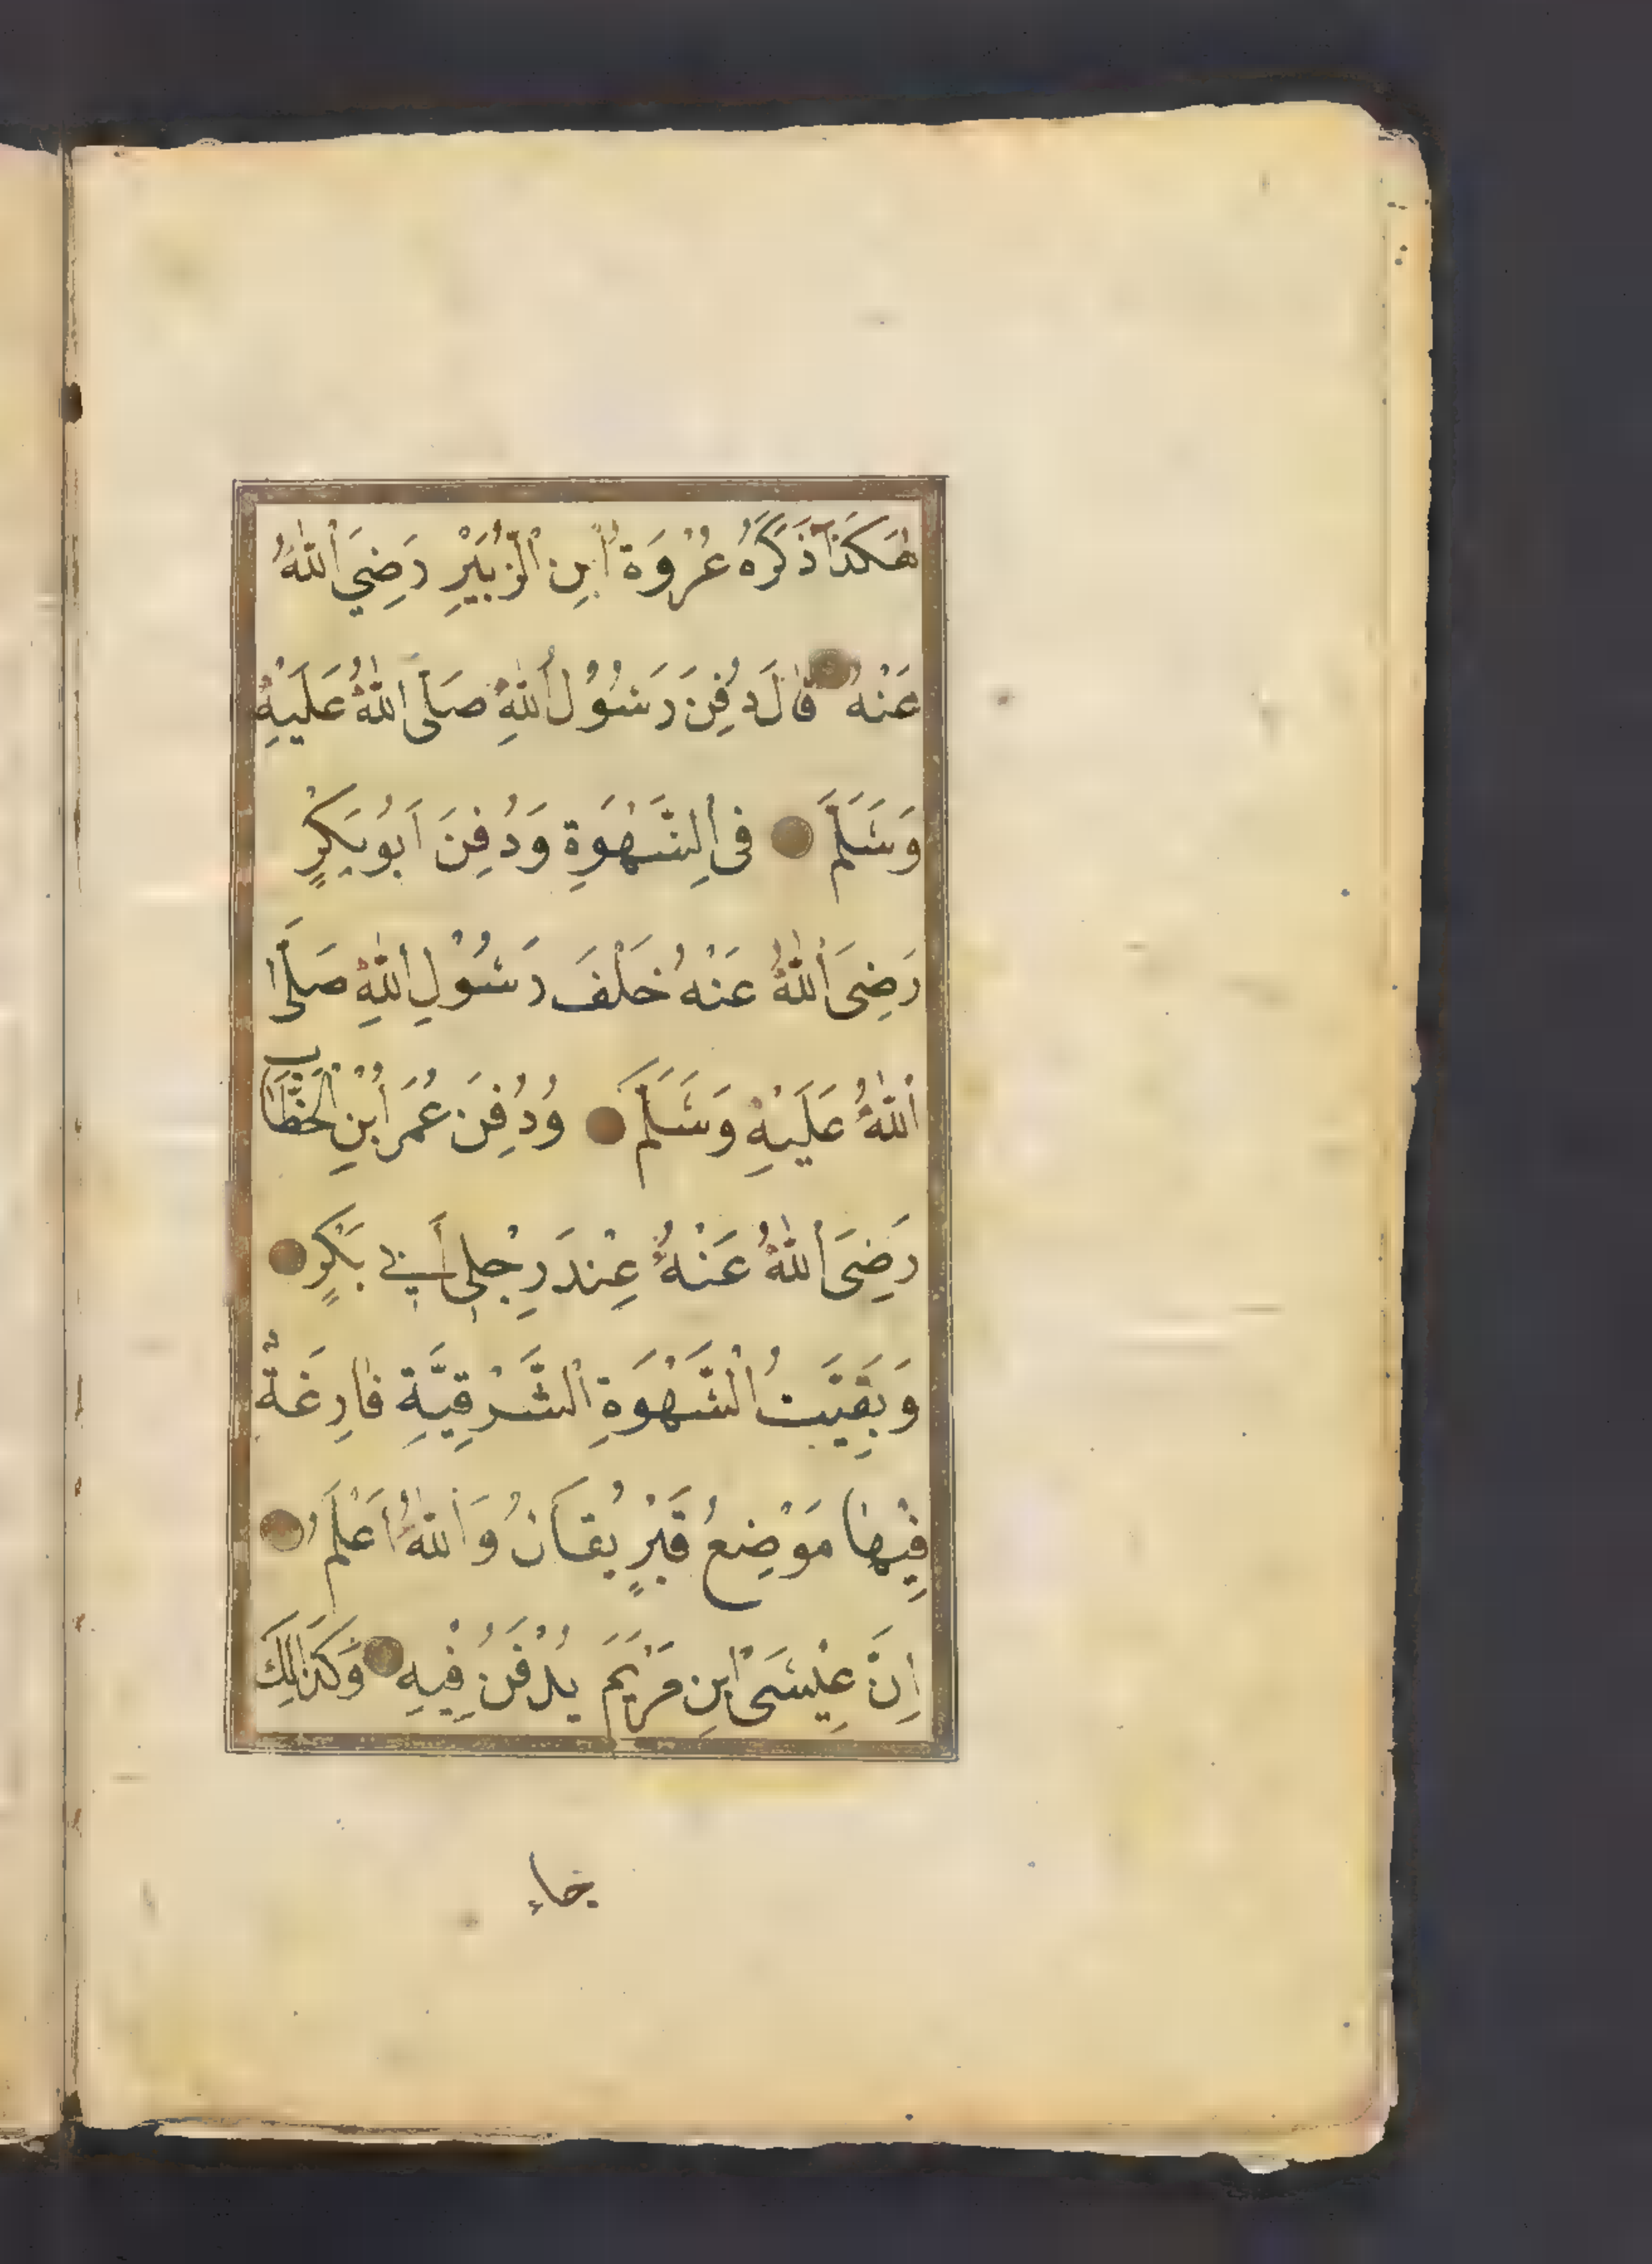 هٰكَذَا ذَكَرَهُ عُرْوَةُ ابْنِ الزُّبَيْرِ رَضِيَ اللّٰهُ
عَنْهُ قَالَ دُفِنَ رَسُوُلُ اللّٰهِ صَلَّى اللّٰهُ عَلَيْهِ
وَسَلَّمَ فِى السَّهْوَةِ وَدُفِنَ اَبُو بَكْرٍ
رَضِىَ اللّٰهُ عَنْهُ خَلْفَ رَسُوْلِ اللّٰهِ صَلَّى
اللّٰهُ عَلَيْهِ وَسَلَّمَ وَدُفِنَ عُمَرُ ابْنِ الْخَطَّابِ
رَضِىَ اللّٰهُ عَنْهُ عِنْدَ رِجْلِي أَبِي بَكْرٍ
وَبَقِيَتُ السَّهْوَةِ الشَّرْقِيَّةِ فَارِغَةٌ
فِيْهَا مَوْضِعُ قَبْرٍ يُقَالُ وَاللّٰهُ اَعْلَمُ
اِنَّ عِيْسَى ابْنِ مَرْيَمَ يُدْفَنُ فِيْهِ وَكَذٰلِكَ
جاء